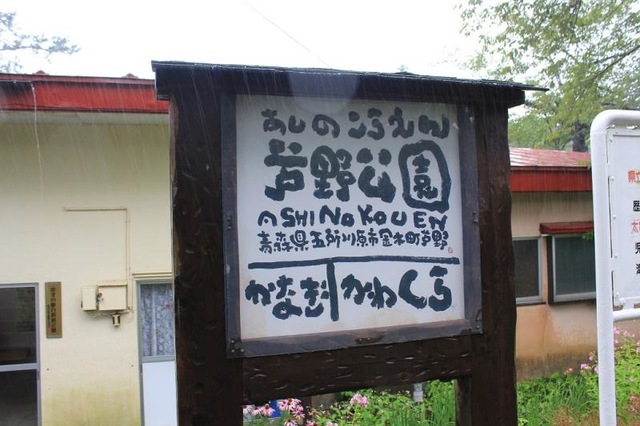 あしのこうえん
芦野公園
ASHINOKOUEN
青森県五所川原市金木町芦野
かなぎ かわくら
県立